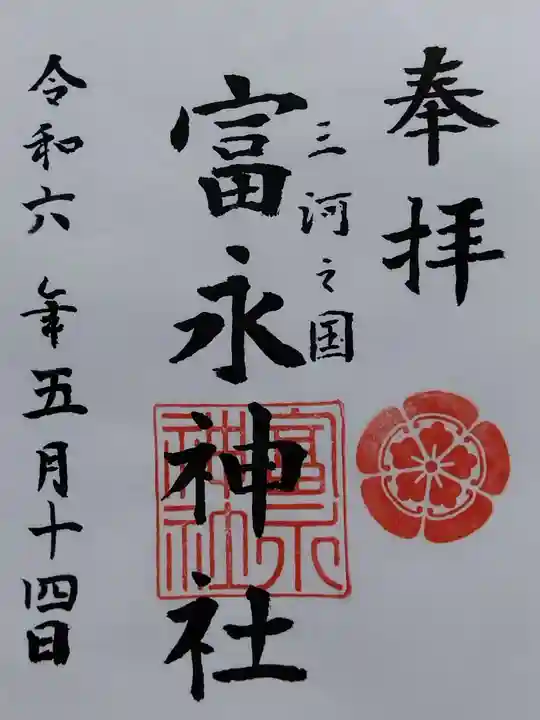 奉拝
三河之国
富永神社
富永神社
令和六年五月十四日